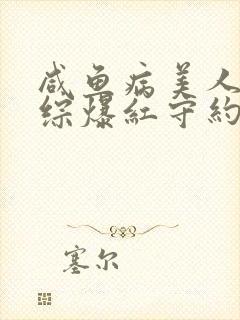 咸鱼病美人
综爆红守约
塞尔